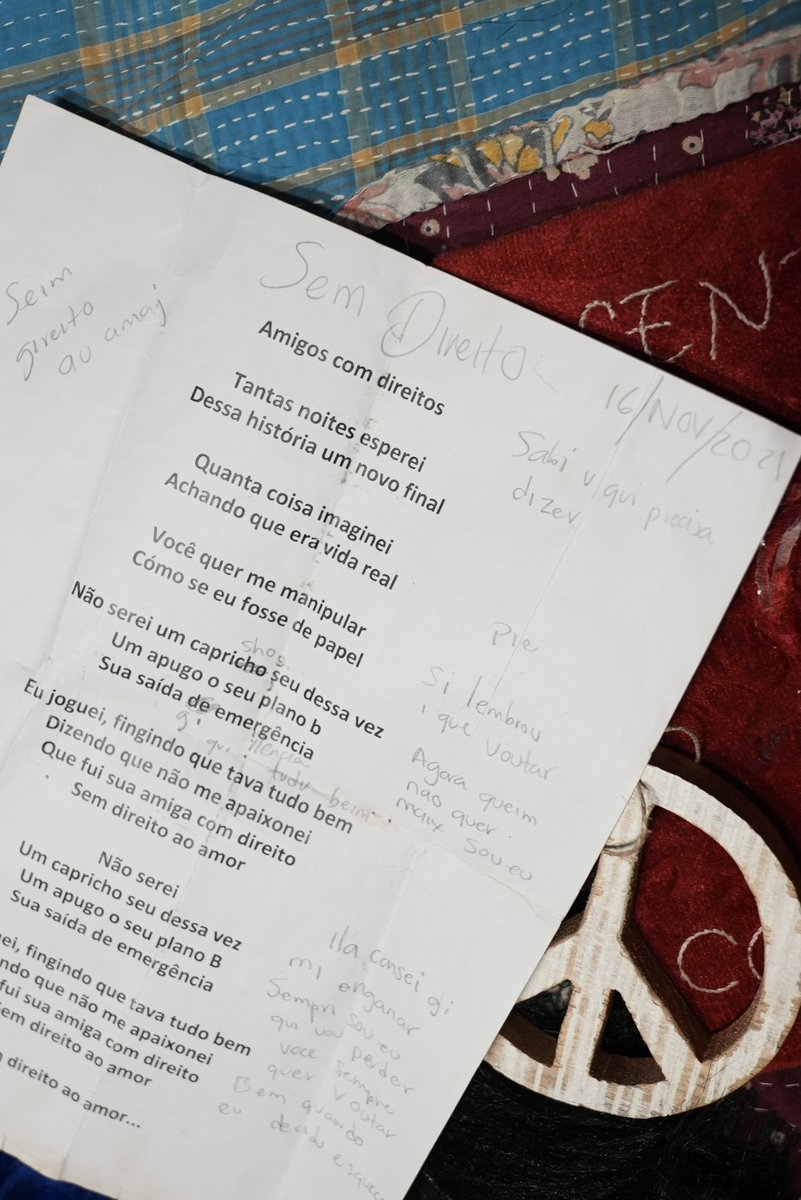 Sem Direito
16/NOV/2021
Seim
direito
au amaj
Amigos com direitos
Tantas noites esperei
Dessa história um novo final
Sabi u qui precisa
dizer
Quanta coisa imaginei
Achando que era vida real
Você quer me manipular
Cómo se eu fosse de papel
Não serei um capricho seu dessa vez
shos
Um apugo o seu plano b
Sua saída de emergência
gi
Eu joguei, fingindo que tava tudo bem
qui tudu beim
Dizendo que não me apaixonei
Que fui sua amiga com direito
Sem direito ao amor
Pre
si lembrou
i que voutar
Agora queim
nao quer
maix sou eu
Não serei
Um capricho seu dessa vez
Um apugo o seu plano B
Sua saída de emergência
uei, fingindo que tava tudo bem
ndo que não me apaixonei
fui sua amiga com direito
em direito ao amor
direito ao amor...
cansei gi
mi enganar
Sempri sou eu
qui vou perder
voce sempre
quer voutar
Bem quando
eu decidu
CEN
CO